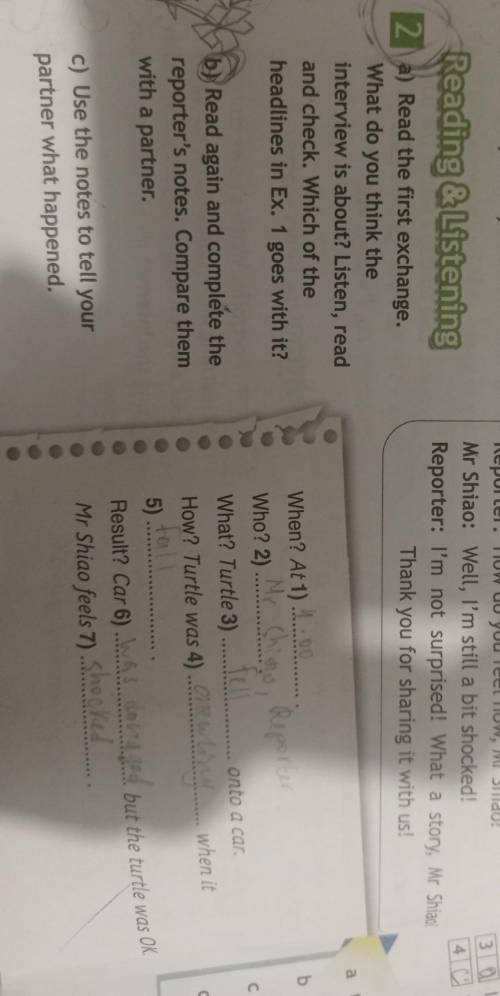 Reading & Listening
2 a) Read the first exchange.
What do you think the
interview is about? Listen, read
and check. Which of the
headlines in Ex. 1 goes with it?
b) Read again and complete the
reporter's notes. Compare them
with a partner.
c) Use the notes to tell your
partner what happened.
Mr Shiao: Well, I'm still a bit shocked!
Reporter: I'm not surprised! What a story, Mr Shiao
Thank you for sharing it with us!
When? At 1) ...........
Who? 2) Mr Shiao, Reporter
What? Turtle 3) fell onto a car.
How? Turtle was 4) crawling when it
5) fall .
Result? Car 6) was damaged but the turtle was OK.
Mr Shiao feels 7) shocked .
3
4
a
b
c